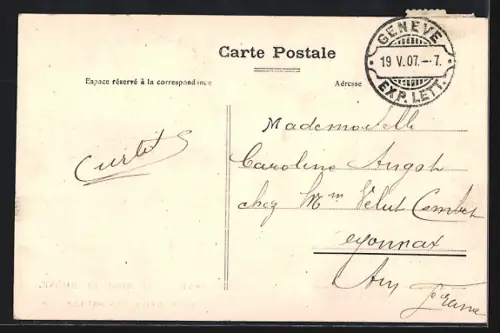 Carte Postale
GENEVE
19 V. 07. – 7.
EXP. LETT.
Espace réservé à la correspondance
Adresse
Mademoiselle
Caroline Angst
chez Mm Velut Combet
Oyonnax
Ain France